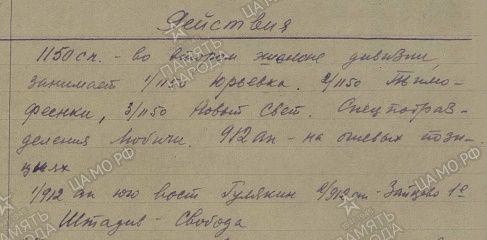 Действия
1150 сп. - во втором эшелоне дивизии,
занимает 1/1150 Юрьевка. 2/1150 Тимо-
феенки, 3/1150 Новый Свет. Спецподраз-
деления Любичи. 912 ап - на огневых пози-
циях
1/912 ап юго вост Гулякин 2/912 ап - Зайцево 1е
Штадив - Свобода
ПАМЯТЬ НАРОДА
ЦА МО РФ